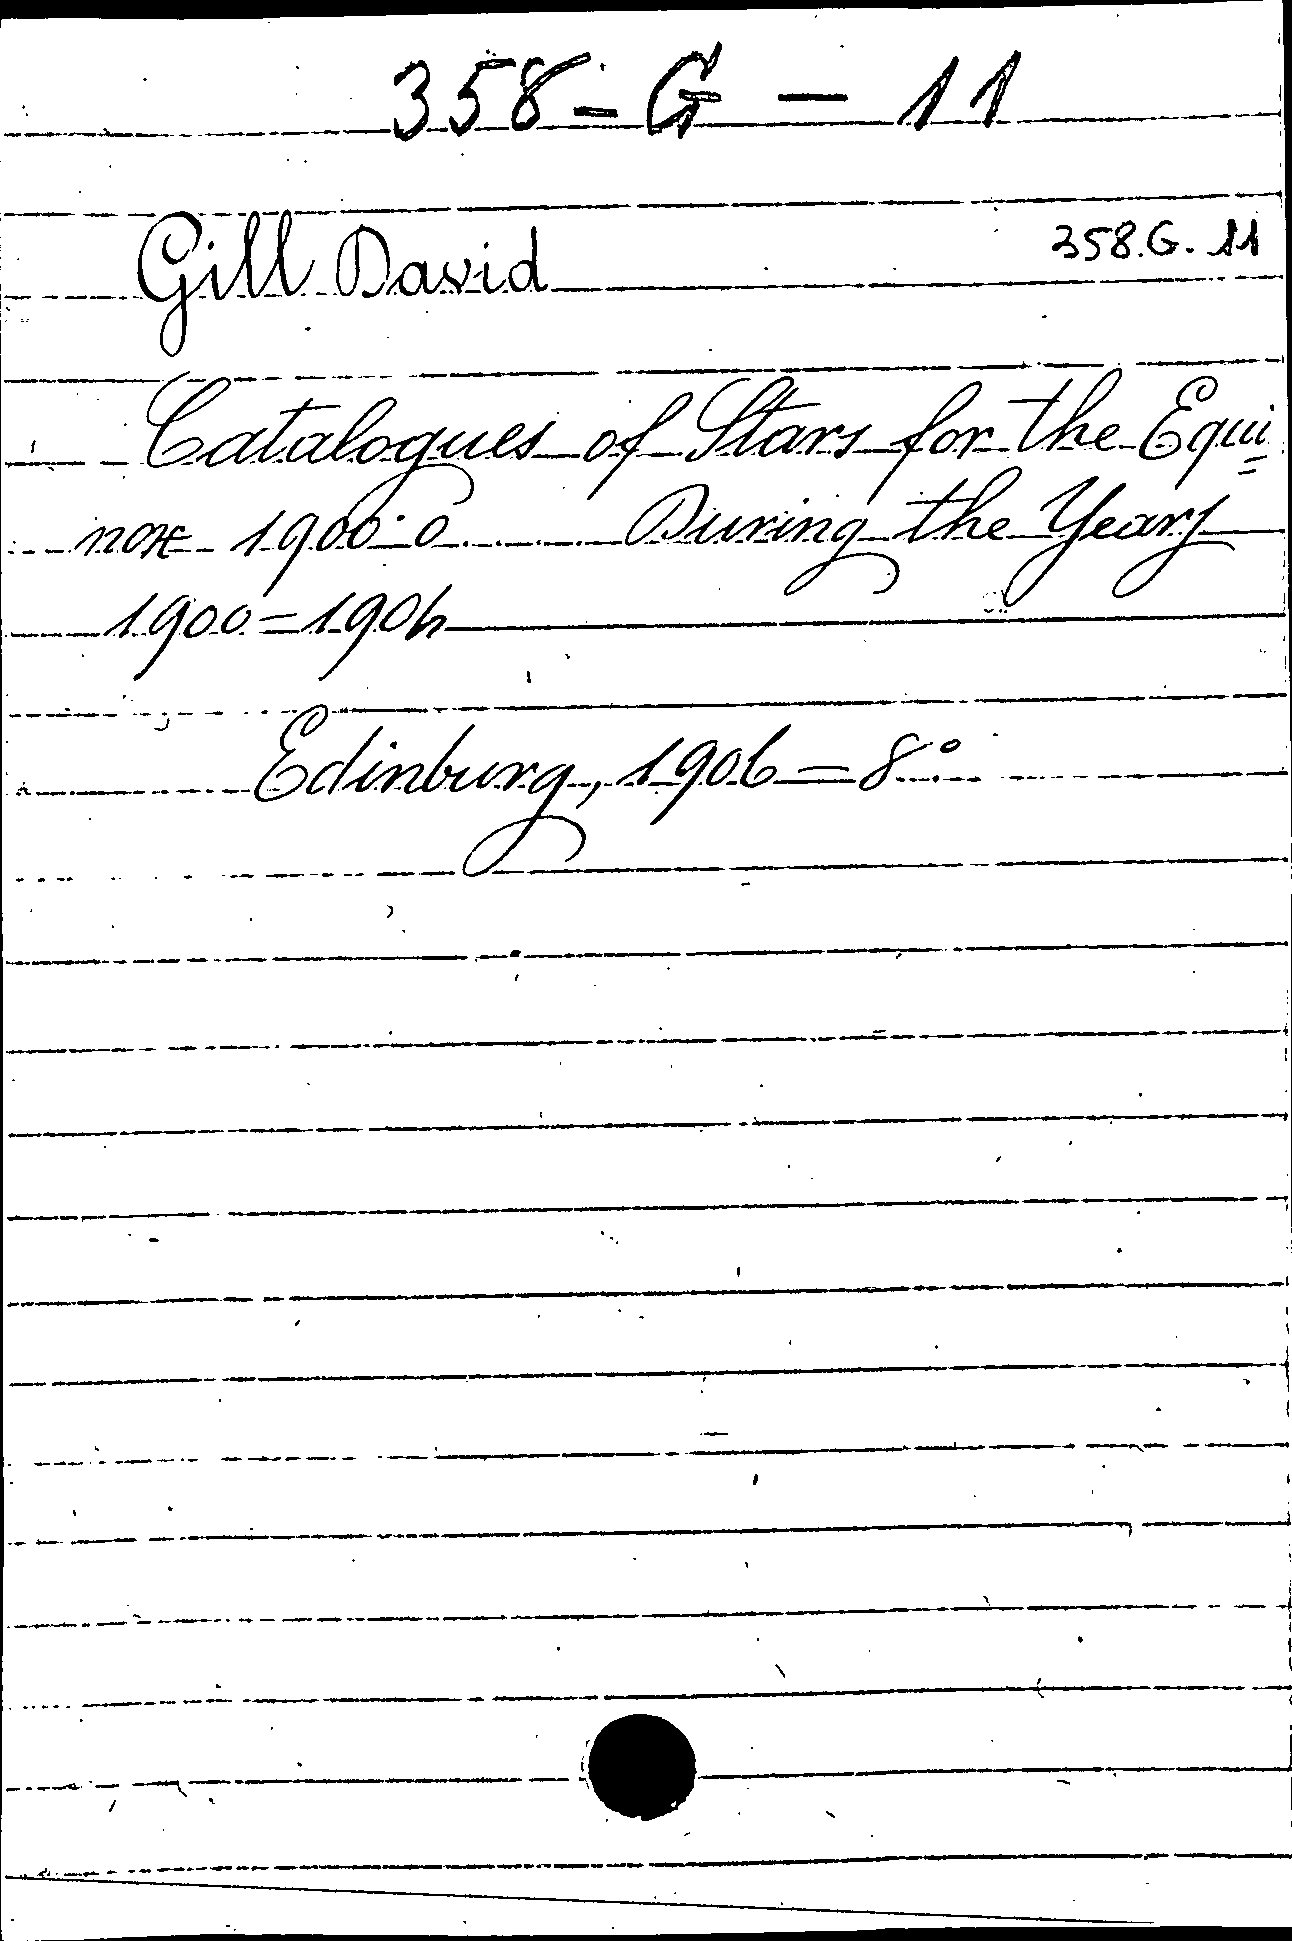 358 - G - 11
Gill David 358.G. 11
Catalogues of Stars for the Equi=
nox 1900·0 ........ During the Years
1900=1904
Edinburg, 1906 = 8°